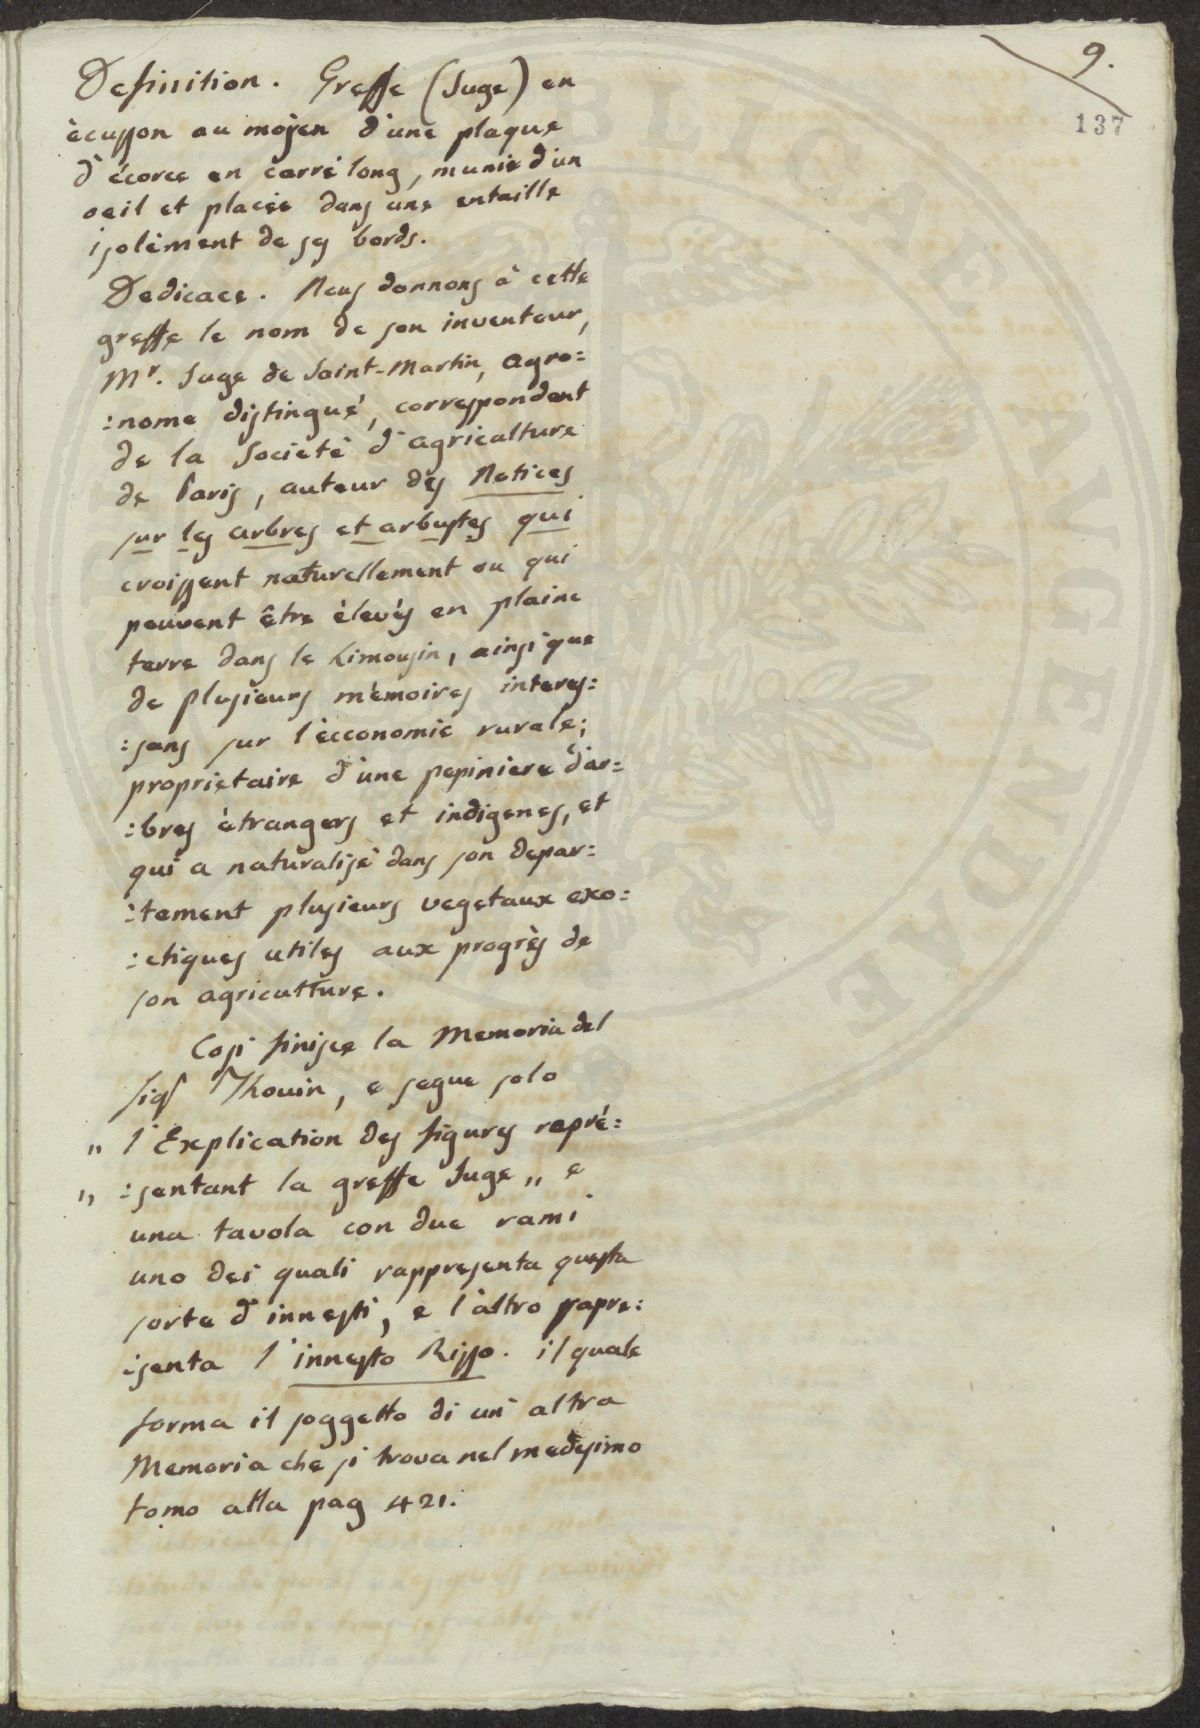 9.
137
Definition. Greffe (Juge) en
ècusson au moyen d'une plaque
d'écorce en carré long, munie d'un
oeil et placée dans une entaille
isolèment de ses bords.
Dedicace. Nous donnons à cette
greffe le nom de son inventeur,
Mr. Juge de Saint-Martin, agro=
:nome distingué, correspondent
de la Societé d'agriculture
de Paris, auteur des Notices
sur les arbres et arbustes qui
croissent naturellement ou qui
peuvent être élevés en plaine
terre dans le Limousin, ainsi que
de plusieurs mémoires interes=
:sans sur l'ècconomie rurale;
proprietaire d'une pepiniere d'ar=
:bres ètrangers et indigenes, et
qui a naturalisé dans son depar=
:tement plusieurs vegetaux exo=
:ctiques utiles aux progrès de
son agriculture.
Cosi finisce la Memoria del
Sigr Thouin, e segue solo
" l'Explication des figures repré=
" :sentant la greffe Juge " e
una tavola con due rami
uno dei quali rappresenta questa
sorte d'innesti, e l'altro rapre=
:senta l'innesto Risso. il quale
forma il soggetto di un'altra
Memoria che si trova nel medesimo
tomo alla pag 421.
BLICAE AVGENDAE